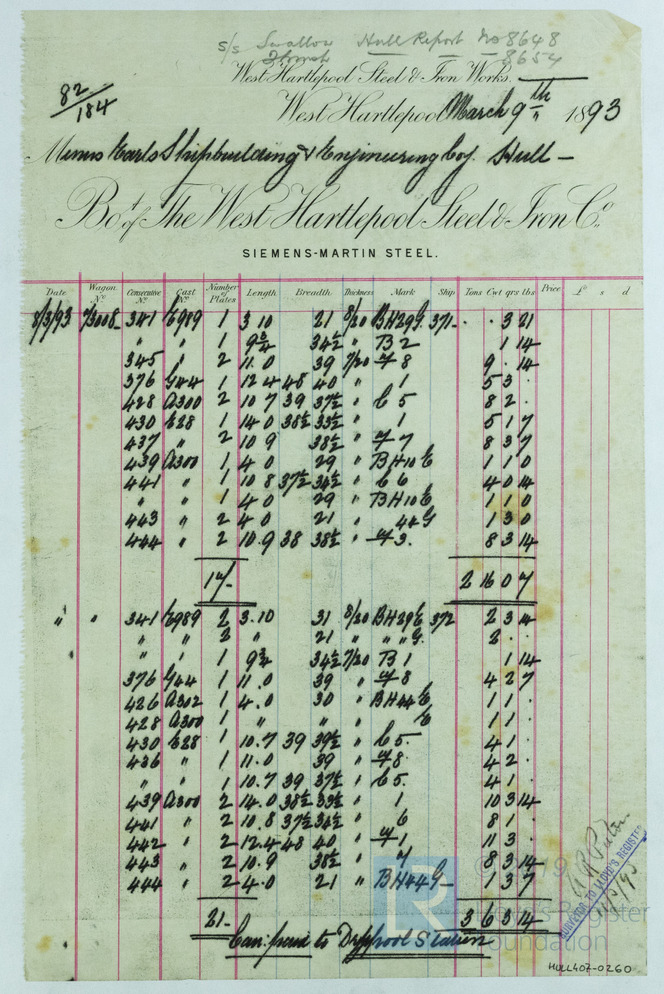 s/s Swallow Hull Report No 8648
8654
West Hartlepool Steel & Iron Works.
82/184
West Hartlepool March 9th 1893
Messrs Earles Shipbuilding & Engineering Coy. Hull —
Bot of The West Hartlepool Steel & Iron Co.
SIEMENS-MARTIN STEEL.
Date Wagon No Consecutive No Cast No Number of Plates Length Breadth Thickness Mark Ship Tons Cwt qrs lbs Price £ s d
8/3/93 7/3008 341 E989 1 3 10 21 8/20 BH29G 371 . . 3 21
" " 1 9¾ 34½ " B 2 1 14
345 " 2 11.0 39 7/20 7 8 9 . 14
376 G44 1 12 4 48 40 " 1 5 3 .
428 A300 2 10.7 39 37½ " C 5 8 2 .
430 E28 1 14.0 38½ 33½ " 1 5 1 7
437 " 2 10 9 38½ " 7 7 8 3 7
439 A300 1 4 0 29 " BH10E 1 1 0
441 " 1 10 8 37½ 34½ " C 6 4 0 14
" " 1 4 0 29 " BH10E 1 1 0
443 " 2 4 0 21 " 44G 1 3 0
444 " 2 10.9 38 38½ " 7 3. 8 3 14
17 2 16 0 7
" " 341 E989 2 3.10 31 8/20 BH29E 372 2 3 14
" " 2 " 21 " " " G. 2 .
" " 1 9¾ 34½ 7/20 B 1 1 14
376 G44 1 11.0 39 " 7 8 4 2 7
426 A302 1 4.0 30 " BH44E 1 1 .
428 A300 1 " " " E 1 1 .
430 E28 1 10.7 39 39½ " C 5. 4 1 .
436 " 1 11.0 39 " 7 8. 4 2 .
" " 1 10.7 39 37½ " C 5. 4 1 .
439 A300 2 14.0 38½ 33½ " 1 10 3 14
441 " 2 10.8 37½ 34½ " 6 8 1 .
442 " 2 12.4 48 40 " 7 1 11 3 .
443 " 2 10.9 38½ " 7 8 3 14
444 " 2 4.0 21 " BH44G 1 3 7
21 3 6 3 14
Car. paid to Drypool Station
SURVEYOR TO LLOYD'S REGISTER
Lloyd's Register
Foundation
HULL407-0260